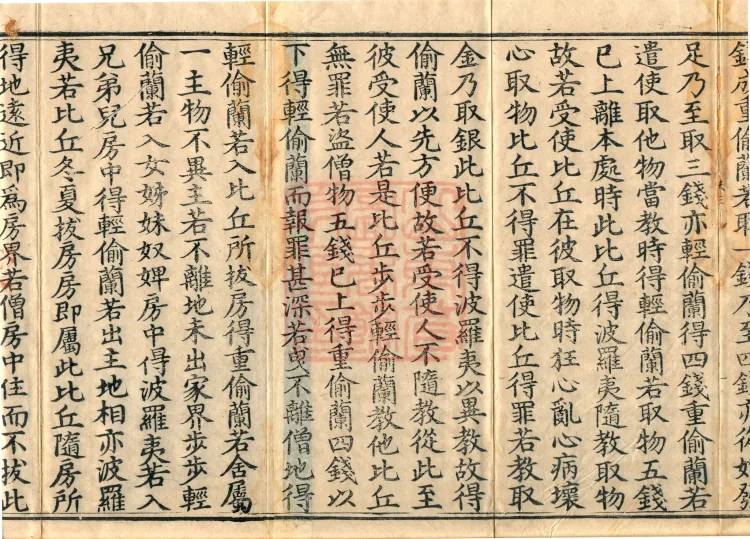 錢成重偷蘭若取一錢乃至四錢亦從如發
足乃至取三錢亦輕偷蘭得四錢重偷蘭若
遣使取他物當教時得輕偷蘭若取物五錢
已上離本處時此比丘得波羅夷隨教取物
故若受使比丘在彼取物時狂心亂心病壞
心取物比丘不得罪遣使比丘得罪若教取
金乃取銀此比丘不得波羅夷以異教故得
偷蘭以先方便故若受使人不隨教從此至
彼受使人若是比丘步步輕偷蘭教他比丘
無罪若盜僧物五錢已上得重偷蘭四錢以
下得輕偷蘭而報罪甚深若曳不離僧地得
輕偷蘭若入比丘所拔房得重偷蘭若舍屬
一主物不異主若不離地未出家界步步輕
偷蘭若入女姊妹奴婢房中得波羅夷若入
兄弟兒房中得輕偷蘭若出主地相亦波羅
夷若比丘冬夏拔房房即屬此比丘隨房所
得地遠近即為房界若僧房中住而不拔此